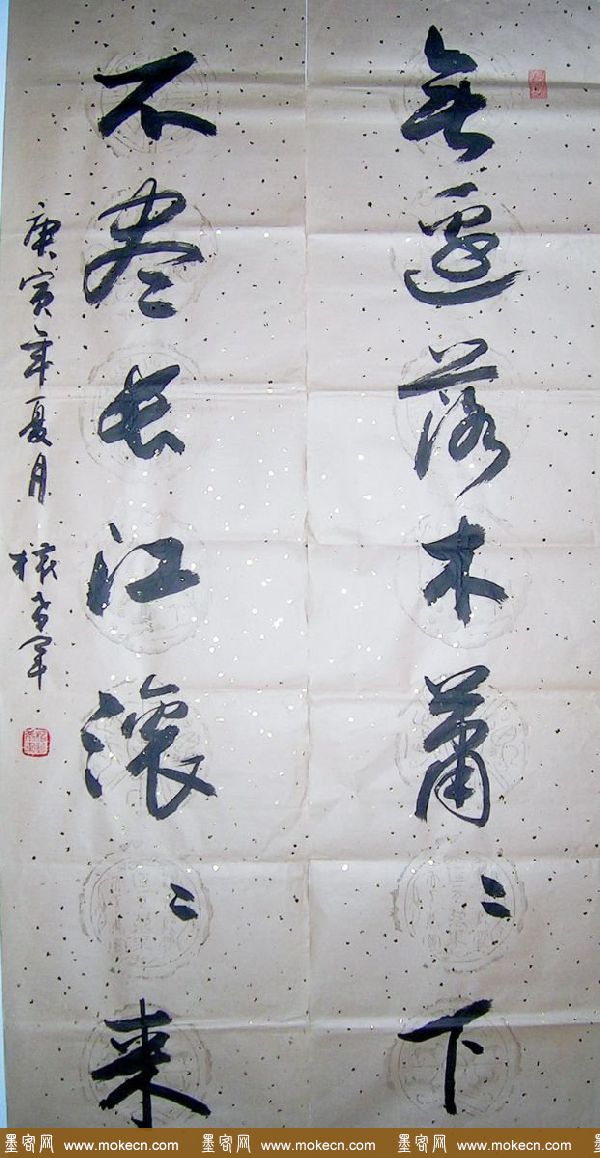 無邊落木蕭〻下
不盡長江滾〻来
庚寅年夏月
墨客网 www.mokecn.com 墨客网 www.mokecn.com 墨客网 www.mokecn.com